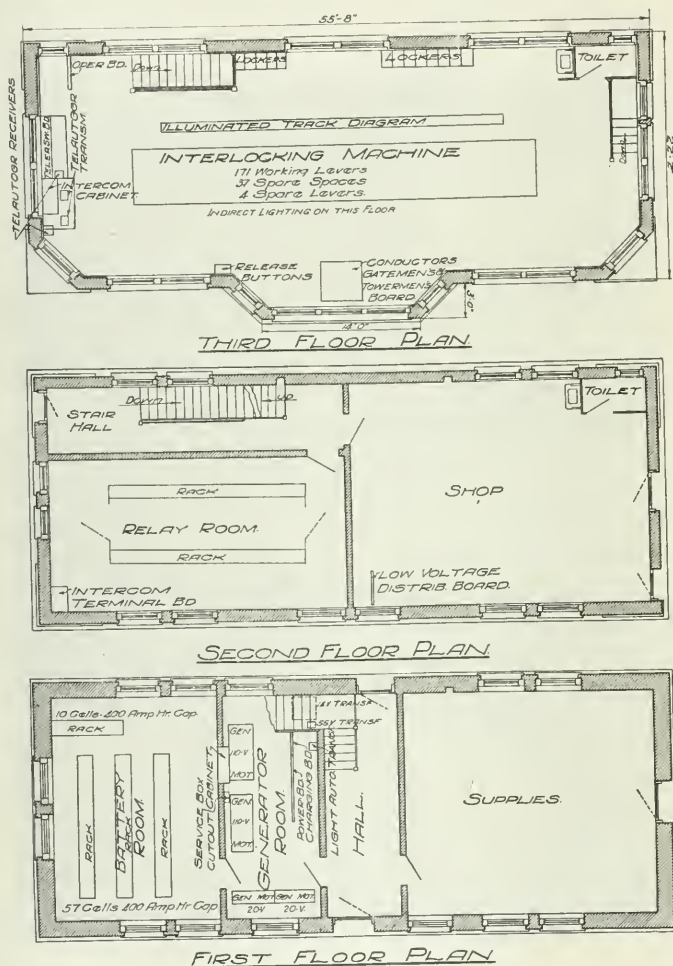 55'-8"
OPER BD.
DOWN
LOCKERS
LOCKERS
TOILET
DOWN
22'-2"
TELAUTOGR RECEIVERS
TELAUTOGR
TRANSM.
INTERCOM
CABINET
ILLUMINATED TRACK DIAGRAM
INTERLOCKING MACHINE
171 Working Levers
37 Spare Spaces
4 Spare Levers.
INDIRECT LIGHTING ON THIS FLOOR
RELEASE
BUTTONS
CONDUCTORS
GATEMEN'S &
TOWERMEN'S
BOARD.
14'0"
3'0"
THIRD FLOOR PLAN.
STAIR
HALL
DOWN
UP
TOILET
RACK
RELAY ROOM.
RACK
SHOP
INTERCOM
TERMINAL BD
LOW VOLTAGE
DISTRIB. BOARD.
SECOND FLOOR PLAN.
10 Cells-400 Amp Hr. Cap.
RACK
RACK
BATTERY
RACK
ROOM.
RACK
57 Cells 400 Amp Hr Cap
SERVICE BOX
CUTOUT CABINET
GEN
110-V
MOT.
GEN
110-V
MOT.
GENERATOR
ROOM.
GEN MOT
20-V
GEN MOT
20-V.
POWER BD.
CHARGING BD.
TRANSF
55V TRANSF
LIGHT AUTO. TRANSF
HALL.
SUPPLIES.
FIRST FLOOR PLAN